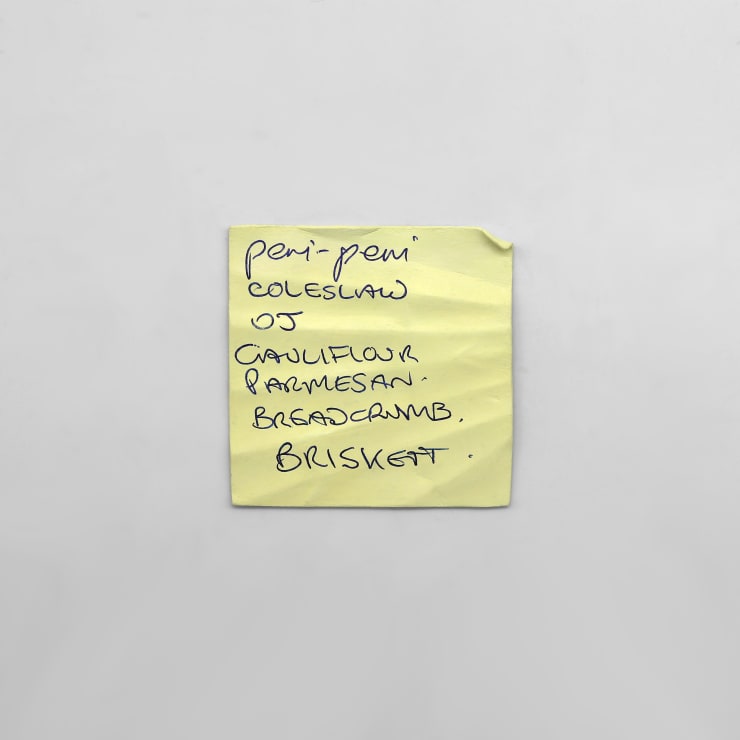 peri-peri
COLESLAW
OJ
CAULIFLOUR
PARMESAN.
BREADCRUMB.
BRISKETT.